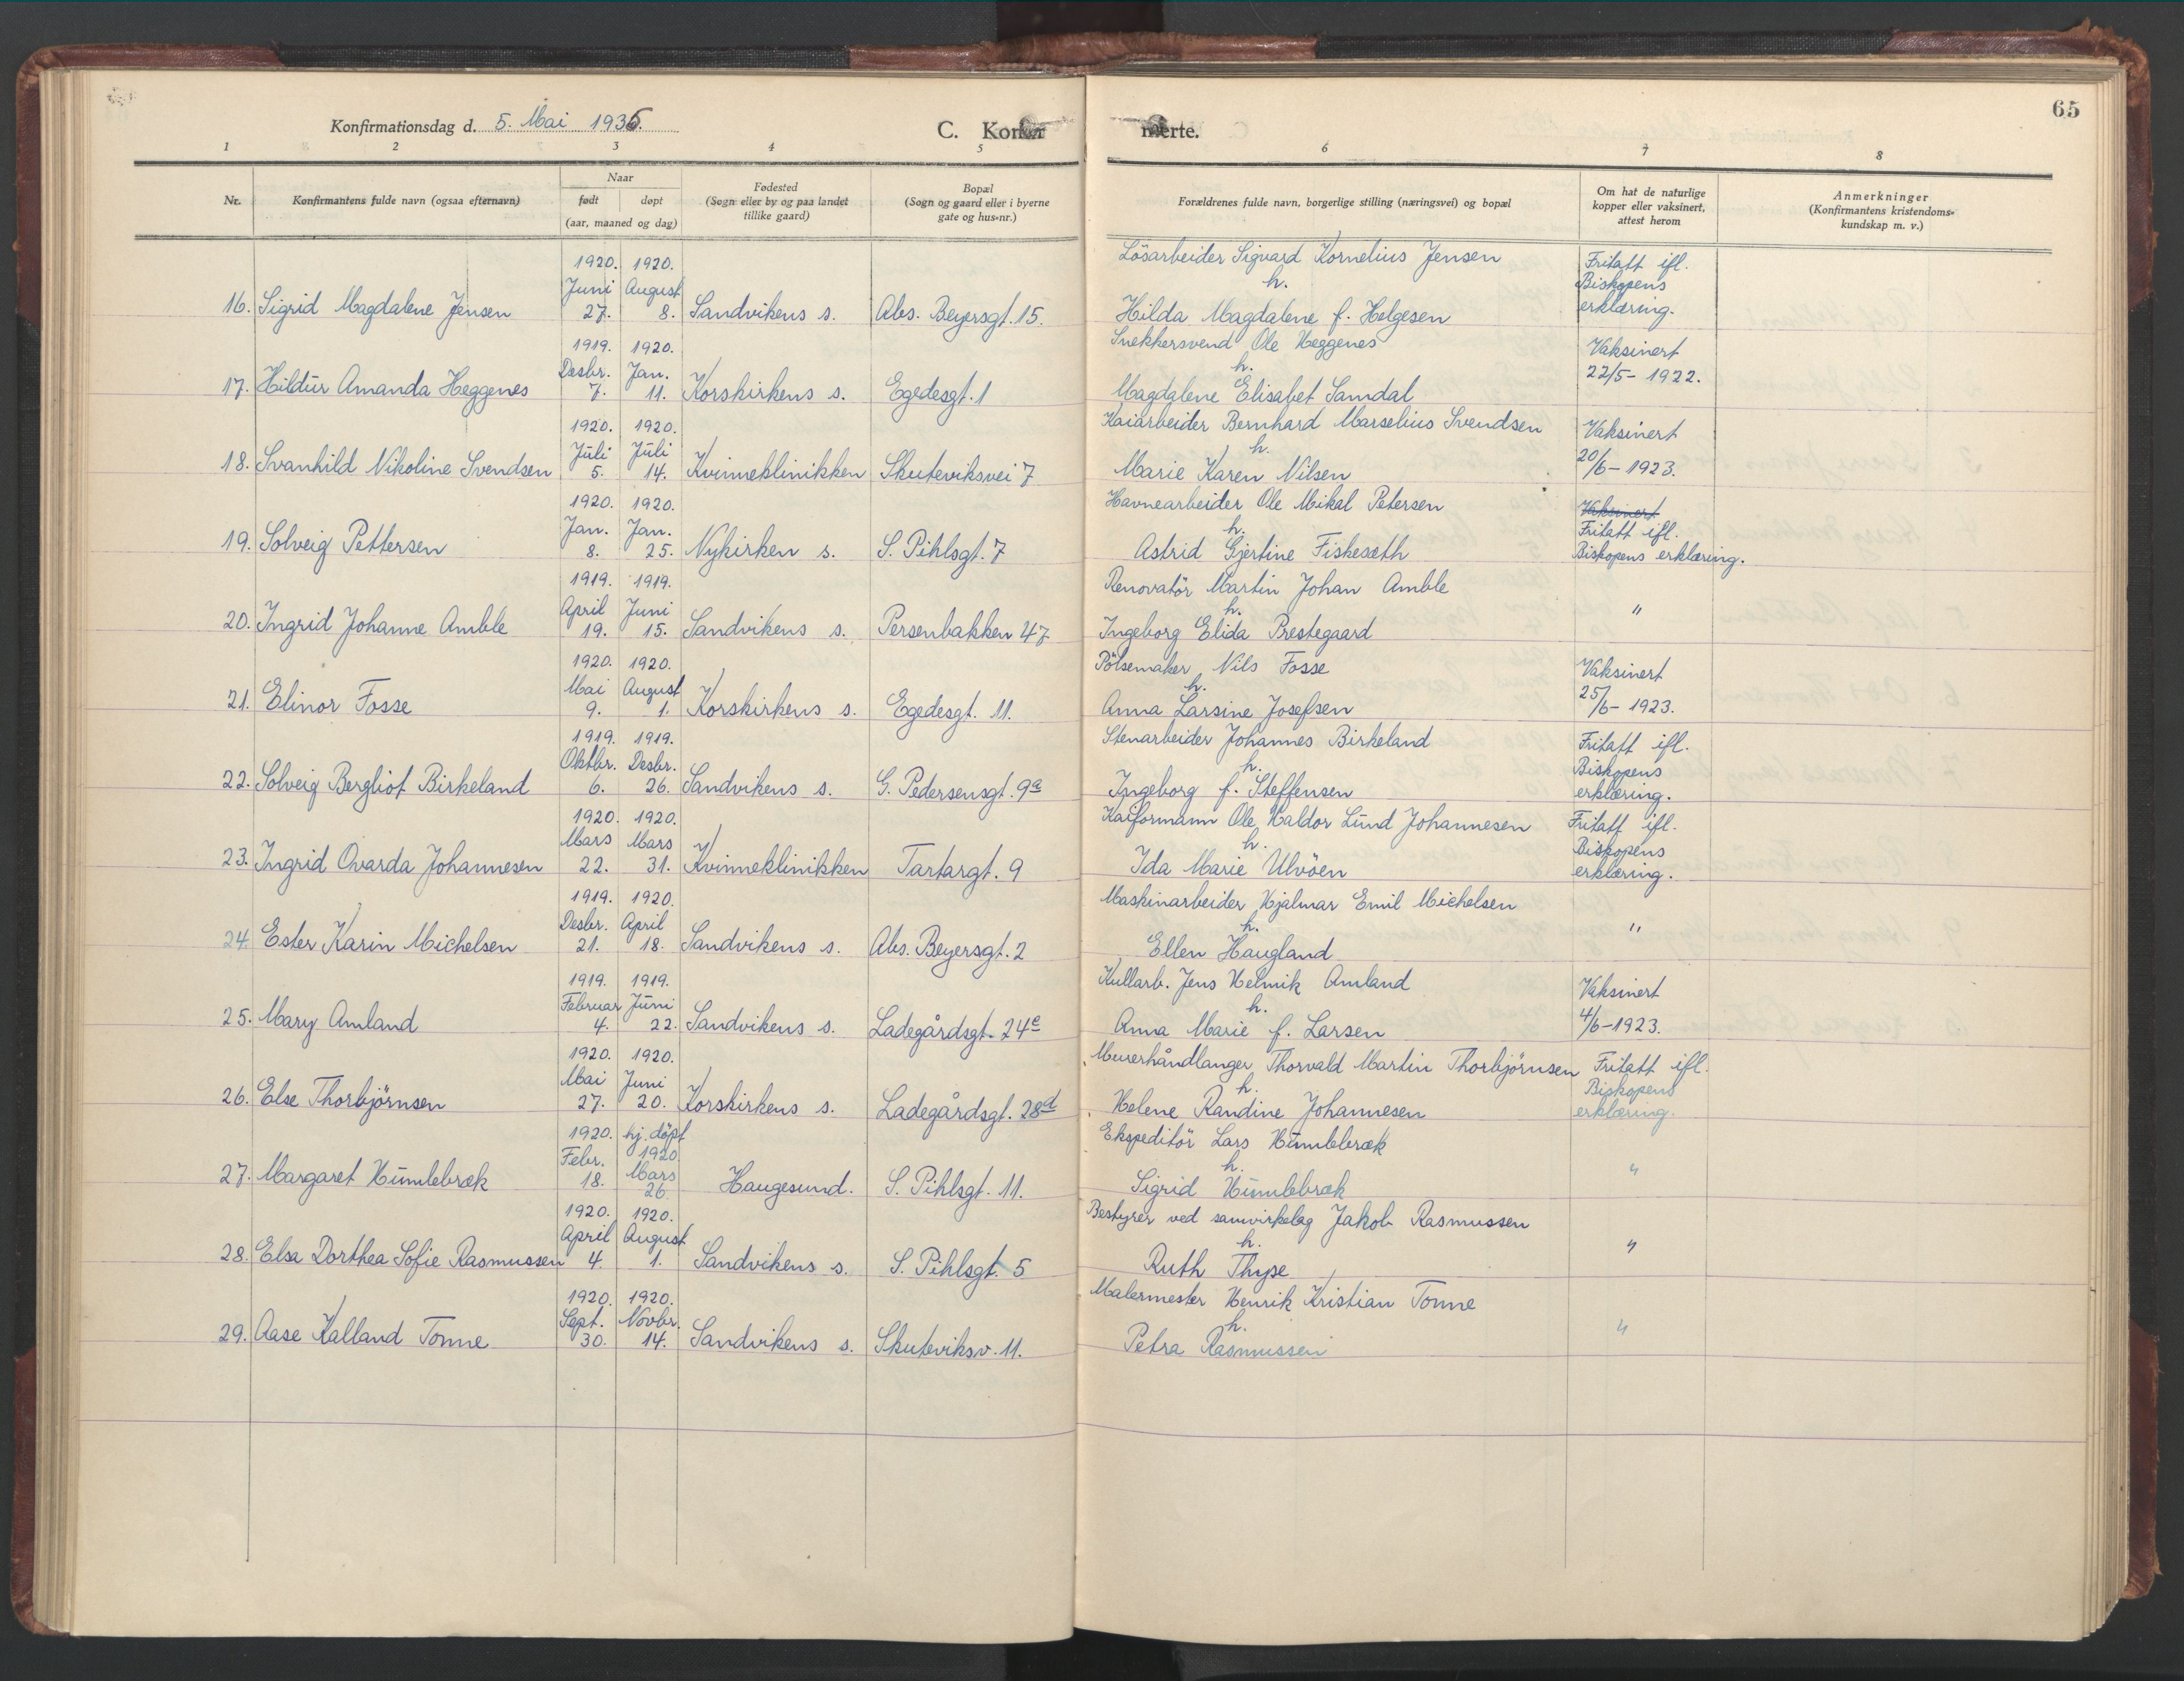 65
Konfirmationsdag d. 5. Mai 1935.
C. Konfir merte.
1 2 3 4 5 6 7 8
Nr.
Konfirmantens fulde navn (ogsaa efternavn)
Naar
født døpt
(aar, maaned og dag)
Fødested
(Sogn eller by og paa landet
tillike gaard)
Bopæl
(Sogn og gaard eller i byerne
gate og hus-nr.)
Forældrenes fulde navn, borgerlige stilling (næringsvei) og bopæl
Om hat de naturlige
kopper eller vaksinert,
attest herom
Anmerkninger
(Konfirmantens kristendoms-
kundskap m. v.)
1920. 1920. Lösarbeider Sigvard Kornelius Jensen Fritatt ifl.
Juni August h. Biskopens
16. Sigrid Magdalene Jensen 27. 8. Sandvikens s. Abs. Beyersgt. 15. Hilda Magdalene f. Helgesen erklæring.
1919. 1920. Snekkersvend Ole Heggenes Vaksinert
Desbr. Jan. h. 22/5- 1922.
17. Hildur Amanda Heggenes 7. 11. Korskirkens s. Egedesgt. 1 Magdalene Elisabet Samdal
1920. 1920. Kaiarbeider Bernhard Marselius Svendsen Vaksinert
Juli Juli h. 20/6- 1923.
18. Svanhild Nikoline Svendsen 5. 14. Kvinneklinikken Skuteviksvei 7 Marie Karen Nilsen
1920. 1920. Havnearbeider Ole Mikal Petersen Vaksinert
Jan. Jan. h. Fritatt ifl.
19. Solveig Pettersen 8. 25. Nykirken s. S. Pihlsgt. 7 Astrid Gjertine Fiskesæth Biskopens erklæring.
1919. 1919. Renovatör Martin Johan Amble
April Juni h. "
20. Ingrid Johanne Amble 19. 15. Sandvikens s. Persenbakken 47 Ingeborg Elida Prestegaard
1920. 1920. Pölsemaker Nils Fosse Vaksinert
Mai August h. 25/6- 1923.
21. Elinor Fosse 9. 1. Korskirkens s. Egedesgt. 11. Anna Larsine Josefsen
1919. 1919. Stenarbeider Johannes Birkeland Fritatt ifl.
Oktbr. Desbr. h. Biskopens
22. Solveig Bergliot Birkeland 6. 26. Sandvikens s. G. Pedersensgt. 9a Ingeborg f. Steffensen erklæring.
1920. 1920. Kaiformann Ole Haldor Lund Johannesen Fritatt ifl.
Mars Mars h. Biskopens
23. Ingrid Ovarda Johannesen 22. 31. Kvinneklinikken Tartargt. 9 Ida Marie Ulvöen erklæring.
1919. 1920. Maskinarbeider Hjalmar Emil Michelsen
Desbr. April h. "
24. Ester Karin Michelsen 21. 18. Sandvikens s. Abs. Beyersgt. 2 Ellen Haugland
1919. 1919. Kullarb. Jens Helmik Amland Vaksinert
Februar Juni h. 4/6-1923.
25. Mary Amland 4. 22. Sandvikens s. Ladegårdsgt. 24e Anna Marie f. Larsen
1920. 1920. Murerhåndlanger Thorvald Martin Thorbjörnsen Fritatt ifl.
Mai Juni h. Biskopens
26. Else Thorbjörnsen 27. 20. Korskirkens s. Ladegårdsgt. 28d Helene Randine Johannesen erklæring.
1920. hj. döpt Ekspeditör Lars Humlebræk
Febr. 1920 h. "
27. Margaret Humlebræk 18. Mars 26. Haugesund. S. Pihlsgt. 11. Sigrid Humlebræk
1920. 1920. Bestyrer ved samvirkelag Jakob Rasmussen
April August h. "
28. Elsa Dorthea Sofie Rasmussen 4. 1. Sandvikens s. S. Pihlsgt. 5 Ruth Thyse
1920. 1920. Malermester Henrik Kristian Tonne
Sept. Novbr. h. "
29. Aase Kalland Tonne 30. 14. Sandvikens s. Skuteviksv. 11. Petra Rasmussen